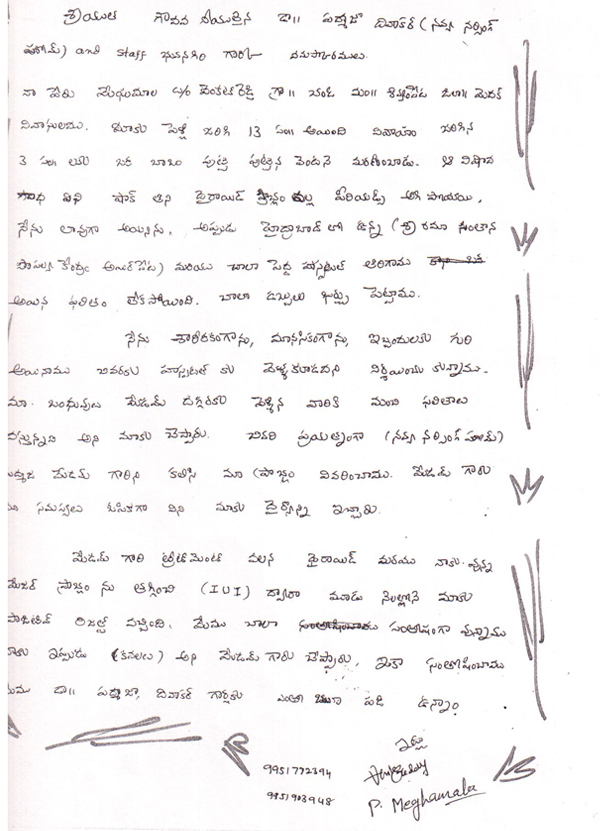 శ్రీయుత గౌరవ నీయులైన డా॥ పద్మజా దివాకర్ (నవ్య నర్సింగ్
హోమ్) and staff బృందం గారికి నమస్కారములు.
నా పేరు మేఘమాల w/o వెంకటరెడ్డి గ్రా॥ మం॥ శివ్వంపేట జిల్లా మెదక్
నివాసులము. మాకు పెళ్లి జరిగి 13 సం॥ అయింది వివాహం జరిగిన
3 సం॥ లకు ఒక బాబు పుట్టి పుట్టిన వెంటనే మరణించాడు. ఆ విషాద
గాధ విని షాక్ తిని థైరాయిడ్ ప్రాబ్లం వల్ల పీరియడ్స్ ఆగి పోయాయి,
నేను లావుగా అయ్యాను, అప్పుడు హైద్రాబాద్ లో ఉన్న (శ్రీ రమా సంతాన
సాఫల్య కేంద్రం అమీర్‌పేట) మరియు చాలా పెద్ద హాస్పిటల్ తిరిగాము
అయిన ఫలితం లేక పోయింది. చాలా డబ్బులు ఖర్చు పెట్టాము.
నేను శారీరకంగాను, మానసికంగాను, ఇబ్బందులకు గురి
అయినాము చివరకు హాస్పిటల్ కు వెళ్ళకూడదని నిర్ణయించుకున్నాము.
మా బంధువులు మేడమ్ దగ్గరకు వెళ్ళిన వారికి మంచి ఫలితాలు
వస్తున్నవి అని మాకు చెప్పారు. చివరి ప్రయత్నంగా (నవ్య నర్సింగ్ హోమ్)
పద్మజ మేడమ్ గారిని కలిసి మా ప్రాబ్లం వివరించాము. మేడమ్ గారు
మా సమస్యలు ఓపికగా విని మాకు ధైర్యాన్ని ఇచ్చారు.
మేడమ్ గారి ట్రీట్‌మెంట్ వలన థైరాయిడ్ మరియు నాకు వున్న
మేజర్ ప్రాబ్లం ను తగ్గించి (IUI) ద్వారా మూడు నెలల్లోనే మాకు
పాజిటివ్ రిజల్ట్ వచ్చింది. మేము చాలా సంతోషంగా వున్నాము
మాకు ఇప్పుడు (కవలలు) అని మేడమ్ గారు చెప్పారు, ఇంకా సంతోషించాము
మేము డా॥ పద్మజా దివాకర్ గార్లకు ఎంతో రుణ పడి ఉన్నాం.
ఇట్లు
9951772394
9951903948
P. Meghamala